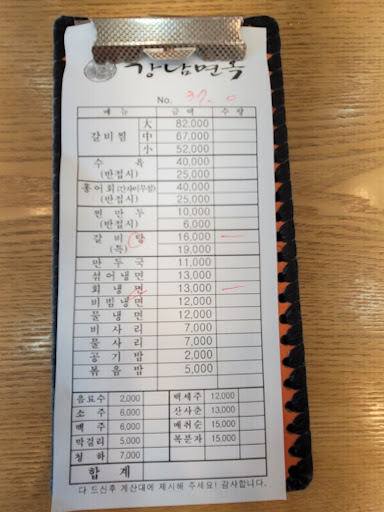 강남면옥
No. 37
메뉴 금액 수량
갈비찜 大 82,000
中 67,000
小 52,000
수육 40,000
(반접시) 25,000
홍어회(간자미무침) 40,000
(반접시) 25,000
찐만두 10,000
(반접시) 6,000
갈비탕 16,000
(특) 19,000
만두국 11,000
섞어냉면 13,000
회냉면 13,000
비빔냉면 12,000
물냉면 12,000
비사리 7,000
물사리 7,000
공기밥 2,000
볶음밥 5,000
음료수 2,000 백세주 12,000
소주 6,000 산사춘 13,000
맥주 6,000 매취순 15,000
막걸리 5,000 복분자 15,000
청하 7,000
합계
다 드신후 계산대에 제시해 주세요! 감사합니다.